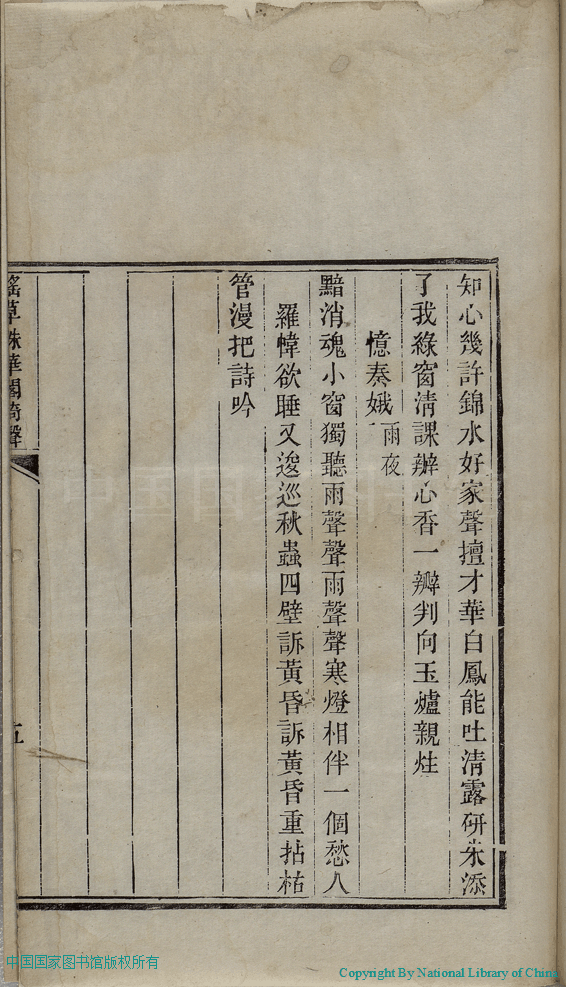 知心幾許錦水好家聲擅才華白鳳能吐清露研朱添
了我綠窗清課辦心香一瓣判向玉爐親炷
憶秦娥 雨夜
黯消魂小窗獨聽雨聲聲雨聲聲寒燈相伴一個愁人
羅幃欲睡又逡巡秋蟲四壁訴黃昏訴黃昏重拈枯
管漫把詩吟
瑤草珠華閣詩聲
五
中国国家图书馆版权所有
Copyright By National Library of China